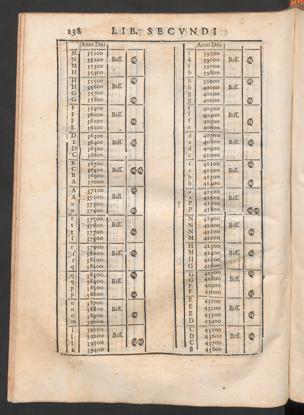 238 LIB. SECVNDI
Anni Dñi
M 35100
N 35200 Biss.
M 35300
M 35400
H 35500
H 35600 Biss.
G 35700
G 35800
F 35900
F 36000 Biss.
E 36100
E 36200
D 36300
E 36400 Biss.
D 36500
C 36600
B 36700
C 36800 Biss.
b 36900
A 37000
A 37100
A 37200 Biss.
u 37300
u 37400
t 37500
t 37600 Biss.
t 37700
f 37800
r 37900
f 38000 Biss.
r 38100
q 38200
q 38300
q 38400 Biss.
p 38500
p 38600
n 38700
n 38800 Biss.
n 38900
m 39000
l 39100
l 39200 Biss.
l 39300
k 39400
Anni Dñi
i 39500
k 39600 Biss.
i 39700
h 39800
h 39900
h 40000 Biss.
g 40100
g 40200
f 40300
f 40400 Biss.
f 40500
e 40600
d 40700
e 40800 Biss.
d 40900
c 41000
c 41100
c 41200 Biss.
b 41300
b 41400
41500
41600 Biss.
P 41700
P 41800
N 41900
N 42000 Biss.
N 42100
M 42200
H 42300
M 42400 Biss.
H 42500
G 42600
G 42700
G 42800 Biss.
F 42900
F 43000
E 43100
E 43200 Biss.
E 43300
D 43400
C 43500
D 43600 Biss.
C 43700
B 43800